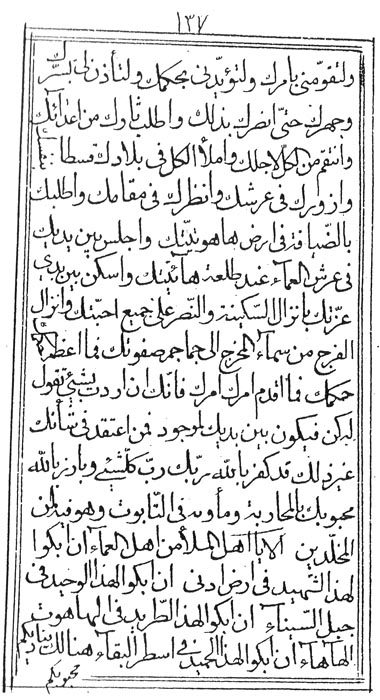 ١٣٧
ولتقومنی بامرك ولتؤیدنی بحكمك ولتأذن لی بسرّك
وجهرك حتّی انصرك بذلك واطلب ثارك من اعدائك
وانتقم من الكلّ لاجلك واملأ الكل فی بلادك قسطا
وازورك فی عرشك وانظرك فی مقامك واطلبك
بالضیافة فی ارض هاهوتیّتك واجلس بین یدیك
فی عرش العمآء عند طلعة هآئیّتك واسكن بین یدی
عزّتك بانزال السّكینة والنّصر علی جمیع احبّتك وانزال
الفرج من سمآء المخرج الی جماجم صفوتك فما اعظم
حكمك فما اقدم امرك امرك فانّك ان اردت بشیئ تقول
له كن فیكون بین یدیك لموجود فمن اعتقد فی شأنك
غیر ذلك قد كفر بالله ربّك ربّ كلّشیئ وبارز بالله
محبوبك بالمحاربة ومأویه فی التّابوت وهو فیه لمن
المخلّدین الا یا اهل الملأ من اهل العمآء ان ابكوا
لهذا الشّهید فی ارض ادنی ان ابكوا لهذا الوحید فی
جبل السّینآء ان ابكوا لهذا الطّرید فی الهاهوت
الهآهآء ان ابكوا لهذا الحمید فی اسطر البقآء هنالك دینابیكم
محبوبكم